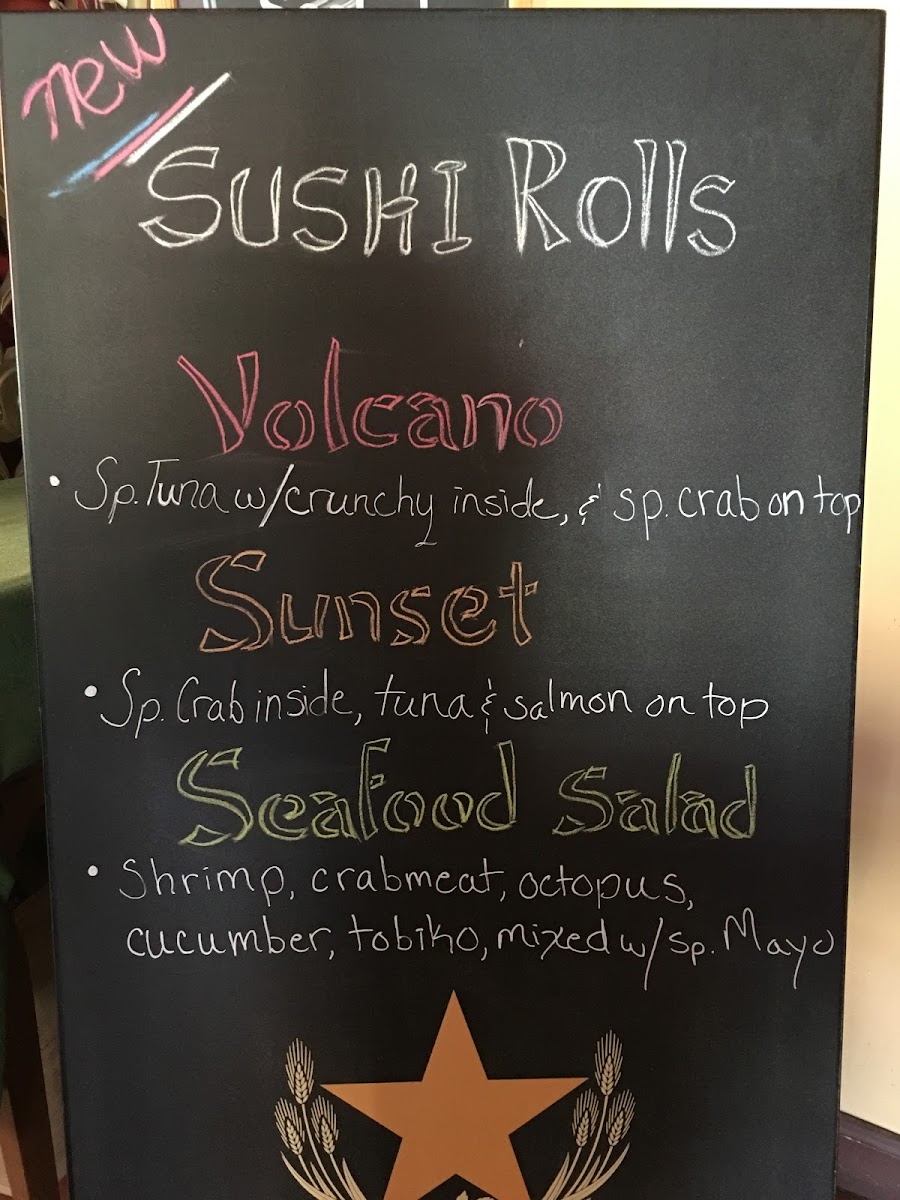 new
SUSHI Rolls
Volcano
• Sp. Tuna w/crunchy inside, & sp. crab on top
Sunset
• Sp. Crab inside, tuna & salmon on top
Seafood Salad
• Shrimp, crabmeat, octopus,
cucumber, tobiko, mixed w/ sp. Mayo